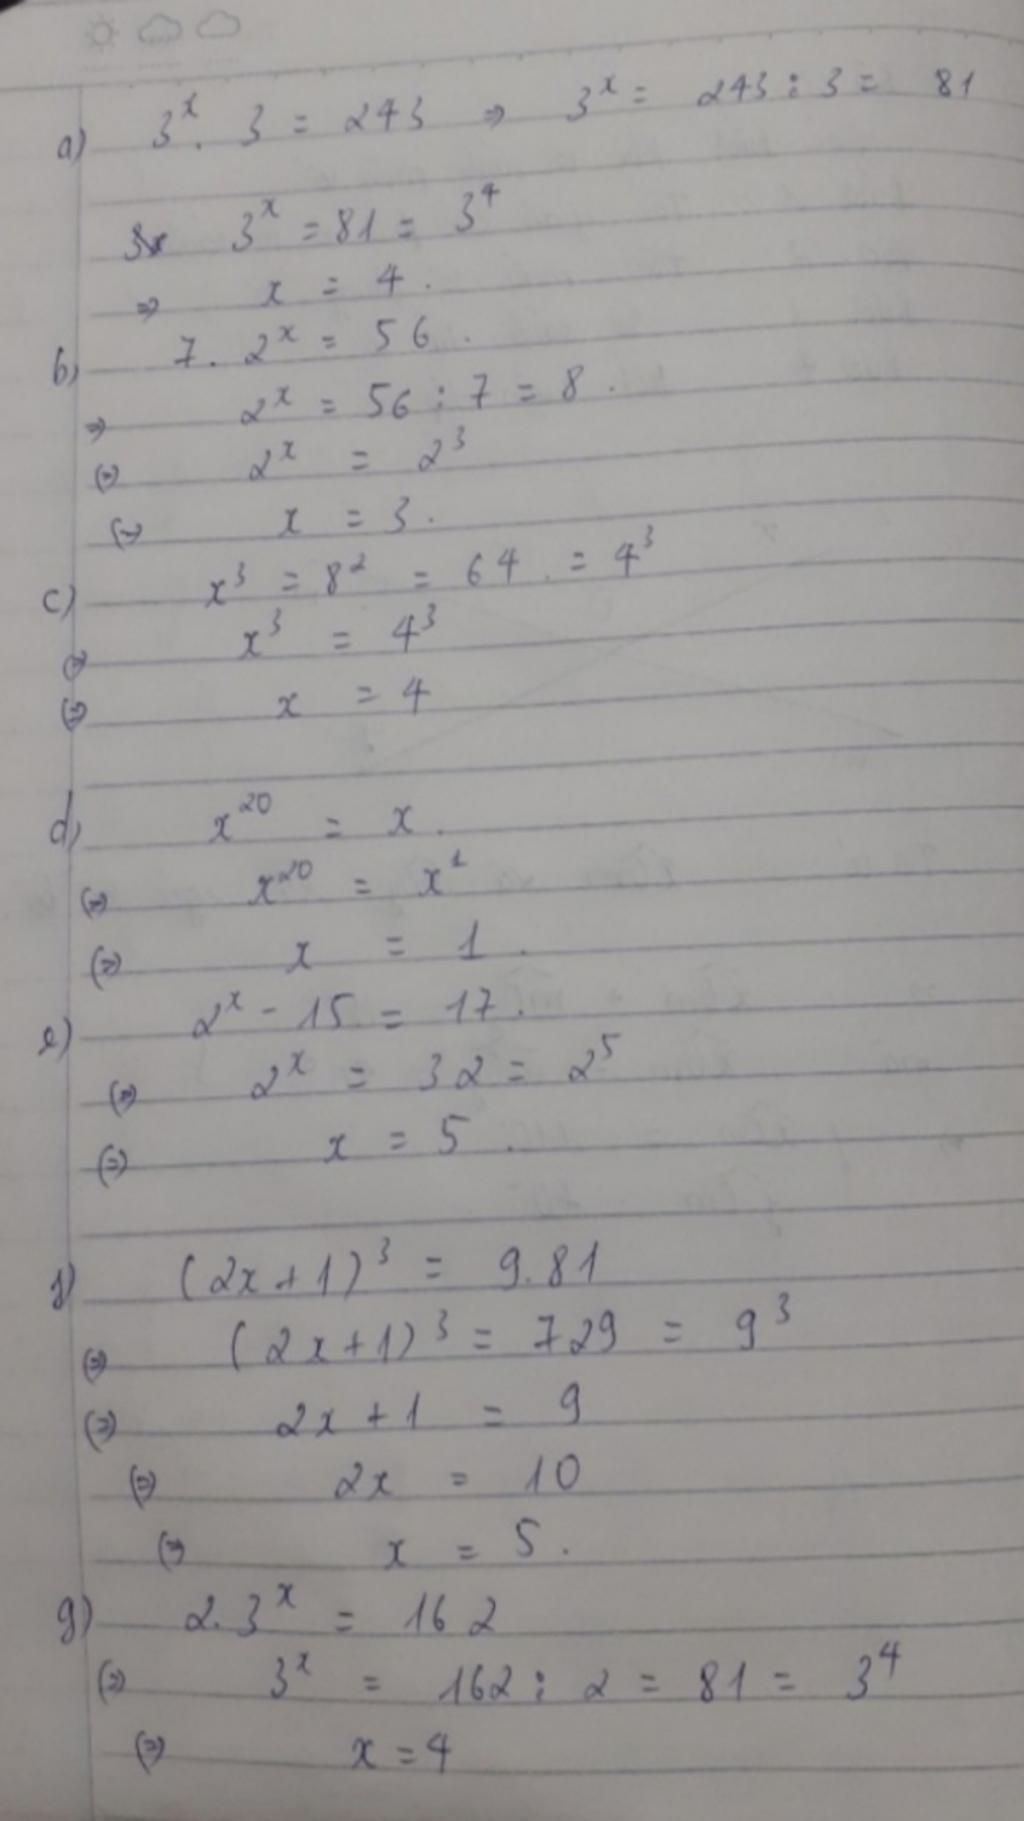 a) 3^x . 3 = 243 ⇒ 3^x = 243 : 3 = 81
3^x = 81 = 3^4
⇒ x = 4 .
b) 7 . 2^x = 56 .
⇒ 2^x = 56 : 7 = 8 .
(=) 2^x = 2^3
(=) x = 3 .
c) x^3 = 8^2 = 64 . = 4^3
(=) x^3 = 4^3
(=) x = 4
d) x^20 = x .
(=) x^20 = x^1
(=) x = 1 .
e) 2^x - 15 = 17 .
(=) 2^x = 32 = 2^5
(=) x = 5 .
f) (2x + 1)^3 = 9.81
(=) (2x + 1)^3 = 729 = 9^3
(=) 2x + 1 = 9
(=) 2x = 10
(=) x = 5 .
g) 2.3^x = 162
(=) 3^x = 162 : 2 = 81 = 3^4
(=) x = 4